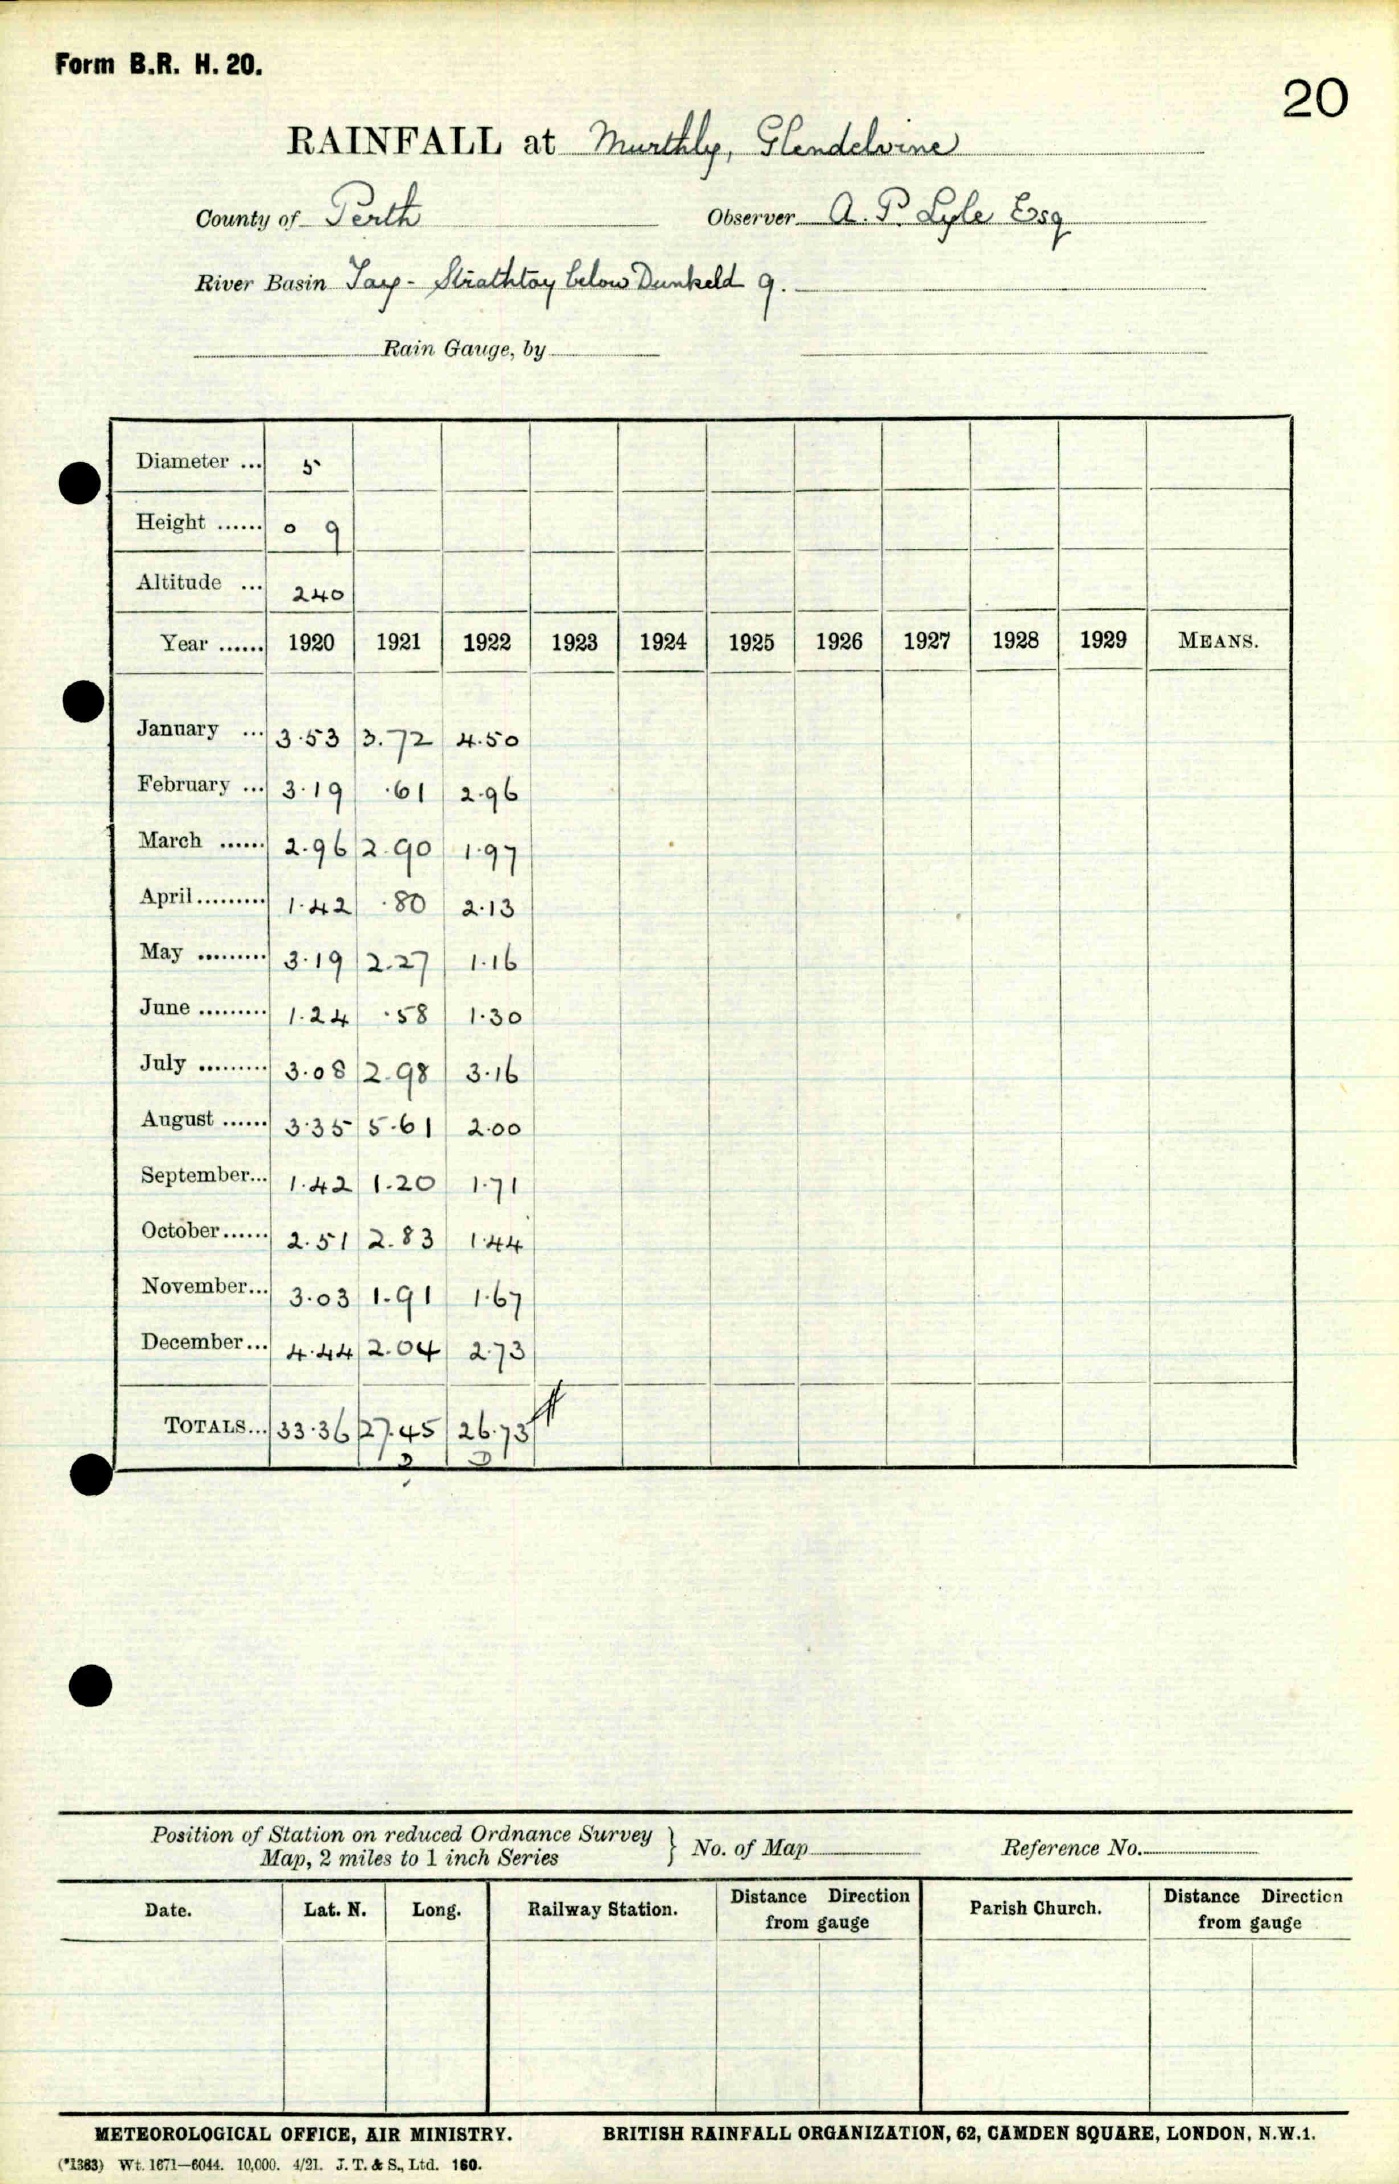 Form B.R. H. 20.
20
RAINFALL at Murthly, Glendelvine
County of Perth Observer A. P. Lyle Esq
River Basin Tay - Strathtay below Dunkeld 9.
Rain Gauge, by
Diameter ... 5
Height ...... 0 9
Altitude ... 240
Year ...... 1920 1921 1922 1923 1924 1925 1926 1927 1928 1929 MEANS.
January ... 3.53 3.72 4.50
February ... 3.19 .61 2.96
March ...... 2.96 2.90 1.97
April......... 1.42 .80 2.13
May ......... 3.19 2.27 1.16
June ......... 1.24 .58 1.30
July ......... 3.08 2.98 3.16
August ...... 3.35 5.61 2.00
September... 1.42 1.20 1.71
October...... 2.51 2.83 1.44
November... 3.03 1.91 1.67
December... 4.44 2.04 2.73
TOTALS... 33.36 27.45 26.73
Position of Station on reduced Ordnance Survey
Map, 2 miles to 1 inch Series } No. of Map Reference No.
Date. Lat. N. Long. Railway Station. Distance Direction from gauge Parish Church. Distance Direction from gauge
METEOROLOGICAL OFFICE, AIR MINISTRY. BRITISH RAINFALL ORGANIZATION, 62, CAMDEN SQUARE, LONDON, N.W.1.
(*1383) Wt. 1671—6044. 10,000. 4/21. J. T. & S., Ltd. 160.